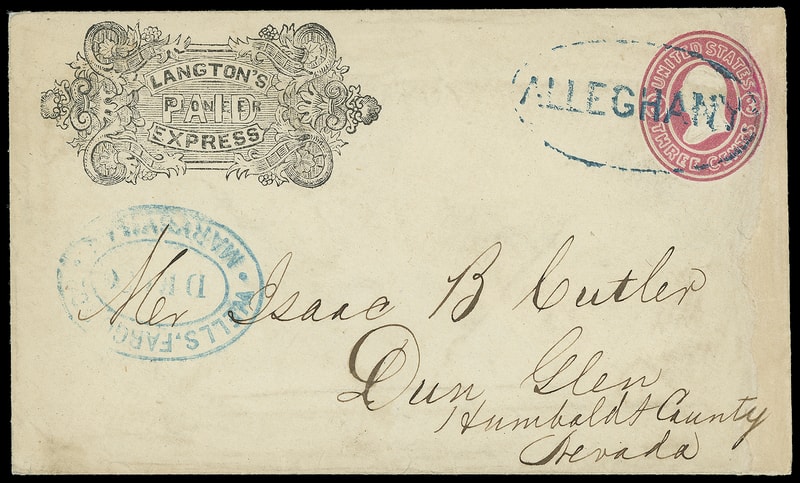 LANGTON'S
PIONEER
PAID
EXPRESS
ALLEGHANY
UNITED STATES
THREE CENTS
WELLS, FARGO
DEC
Mr Isaac B Cutler
Dun Glen
Humboldt County
Nevada